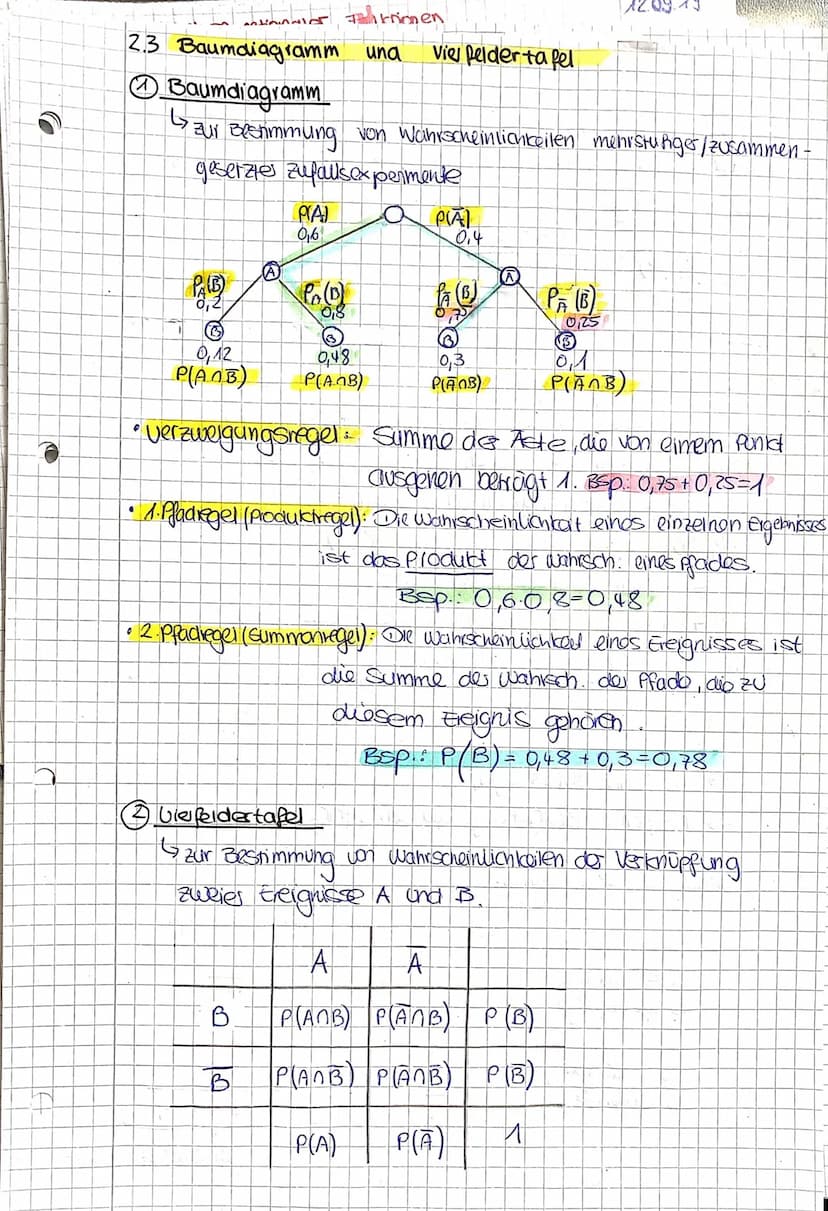 12.09.19
2.3 Baumdiagramm und Vierfeldertafel
① Baumdiagramm
↳ zur Bestimmung von Wahrscheinlichkeiten mehrstufiger/zusammen-
gesetztes Zufallsexperimente
P(A) P(Ā)
0,6 0,4
A Ā
P_A(B̅) P_A(B) P_Ā(B) P_Ā(B̅)
0,2 0,8 0,75 0,25
B̅ B B B̅
0,12 0,48 0,3 0,1
P(A∩B̅) P(A∩B) P(Ā∩B) P(Ā∩B̅)
• Verzweigungsregel: Summe der Äste, die von einem Punkt
ausgehen beträgt 1. Bsp.: 0,75+0,25=1
• 1. Pfadregel (Produktregel): Die Wahrscheinlichkeit eines einzelnen Ergebnisses
ist das Produkt der Wahrsch. eines Pfades.
Bsp.: 0,6·0,8=0,48
• 2. Pfadregel (Summenregel): Die Wahrscheinlichkeit eines Ereignisses ist
die Summe der Wahrsch. der Pfade, die zu
diesem Ereignis gehören.
Bsp.: P(B) = 0,48 + 0,3 = 0,78
② Vierfeldertafel
↳ zur Bestimmung von Wahrscheinlichkeiten der Verknüpfung
zweier Ereignisse A und B.
A Ā
B P(A∩B) P(Ā∩B) P(B)
B̅ P(A∩B̅) P(Ā∩B̅) P(B̅)
P(A) P(Ā) 1